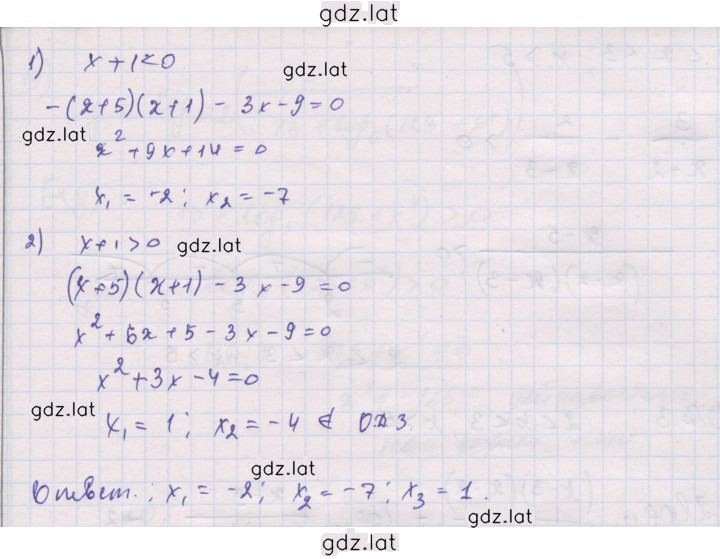 gdz.lat
1) x+1<0
gdz.lat
-(x+5)(x+1) - 3x-9=0
gdz.lat
x²+9x+14=0
x₁ = -2; x₂ = -7
2) x+1>0
gdz.lat
(x+5)(x+1) - 3x-9=0
x²+6x+5-3x-9=0
x²+3x-4=0
gdz.lat
x₁ = 1; x₂ = -4 ∉ ОДЗ.
gdz.lat
Ответ.: x₁ = -2; x₂ = -7; x₃ = 1.
gdz.lat
gdz.lat